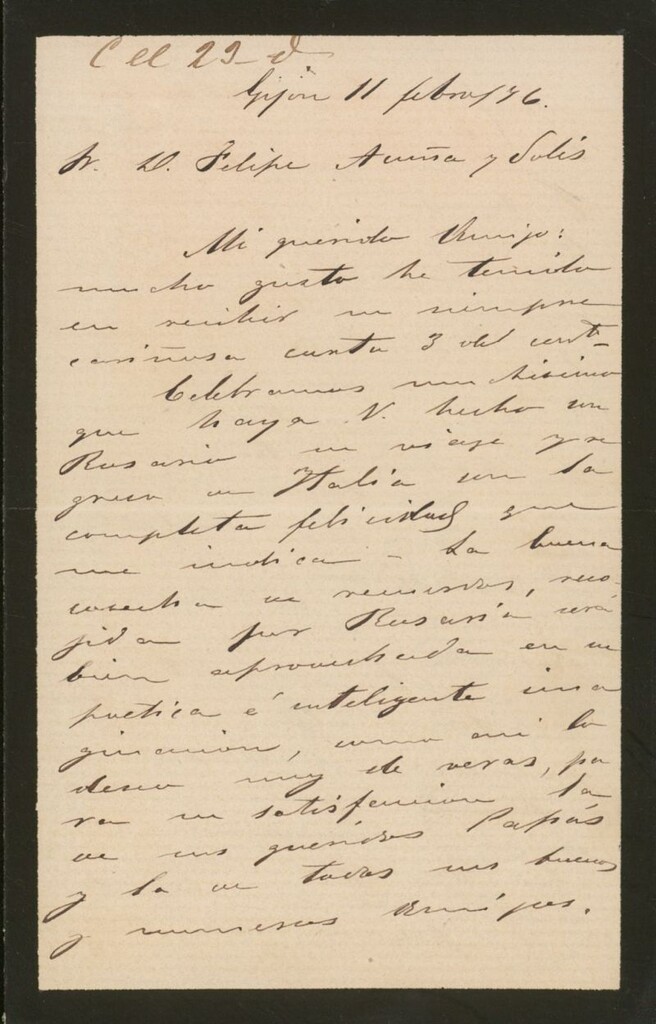 C cc 29-d
Gijón 11 febro/76.
Sr. D. Felipe Acuña y Solís
Mi querido Amigo:
mucho gusto he tenido
en recibir su siempre
cariñosa carta 3 del cort-
Celebramos muchisimo
que haya V. hecho con
Rosario su viaje y re
greso de Italia con la
completa felicidad que
me indica - La buena
cosecha de recuerdos, reco-
jida por Rosario será
bien aprovechada en su
poética é inteligente ima
ginación, como asi lo
deseo muy de veras, pa
ra su satisfaccion la
de sus queridos Papás
y la de todos sus buenos
y numerosos amigos.